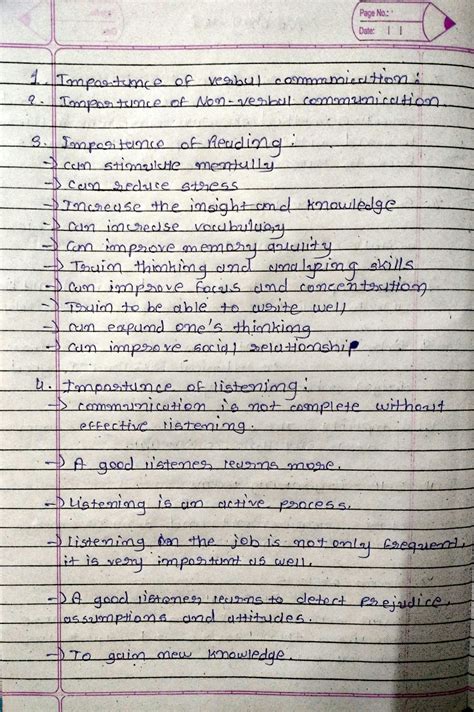 Page No.:
Date: | |
1. Importance of verbal communication:
2. Importance of Non-verbal communication
3. Importance of Reading:
→ can stimulate mentally
→ Can reduce stress
→ Increase the insight and knowledge
→ can increase vocabulary
→ Can improve memory quality
→ Train thinking and analyping skills
→ can improve focus and concentration
→ Train to be able to write well
→ can expand one's thinking
→ can improve social relationship
4. Importance of listening:
→ communication is not complete without
effective listening.
→ A good listener learns more.
→ Listening is an active process.
→ listening on the job is not only frequent,
it is very important as well.
→ A good listener learns to detect prejudice,
assumptions and attitudes.
→ To gain new knowledge.